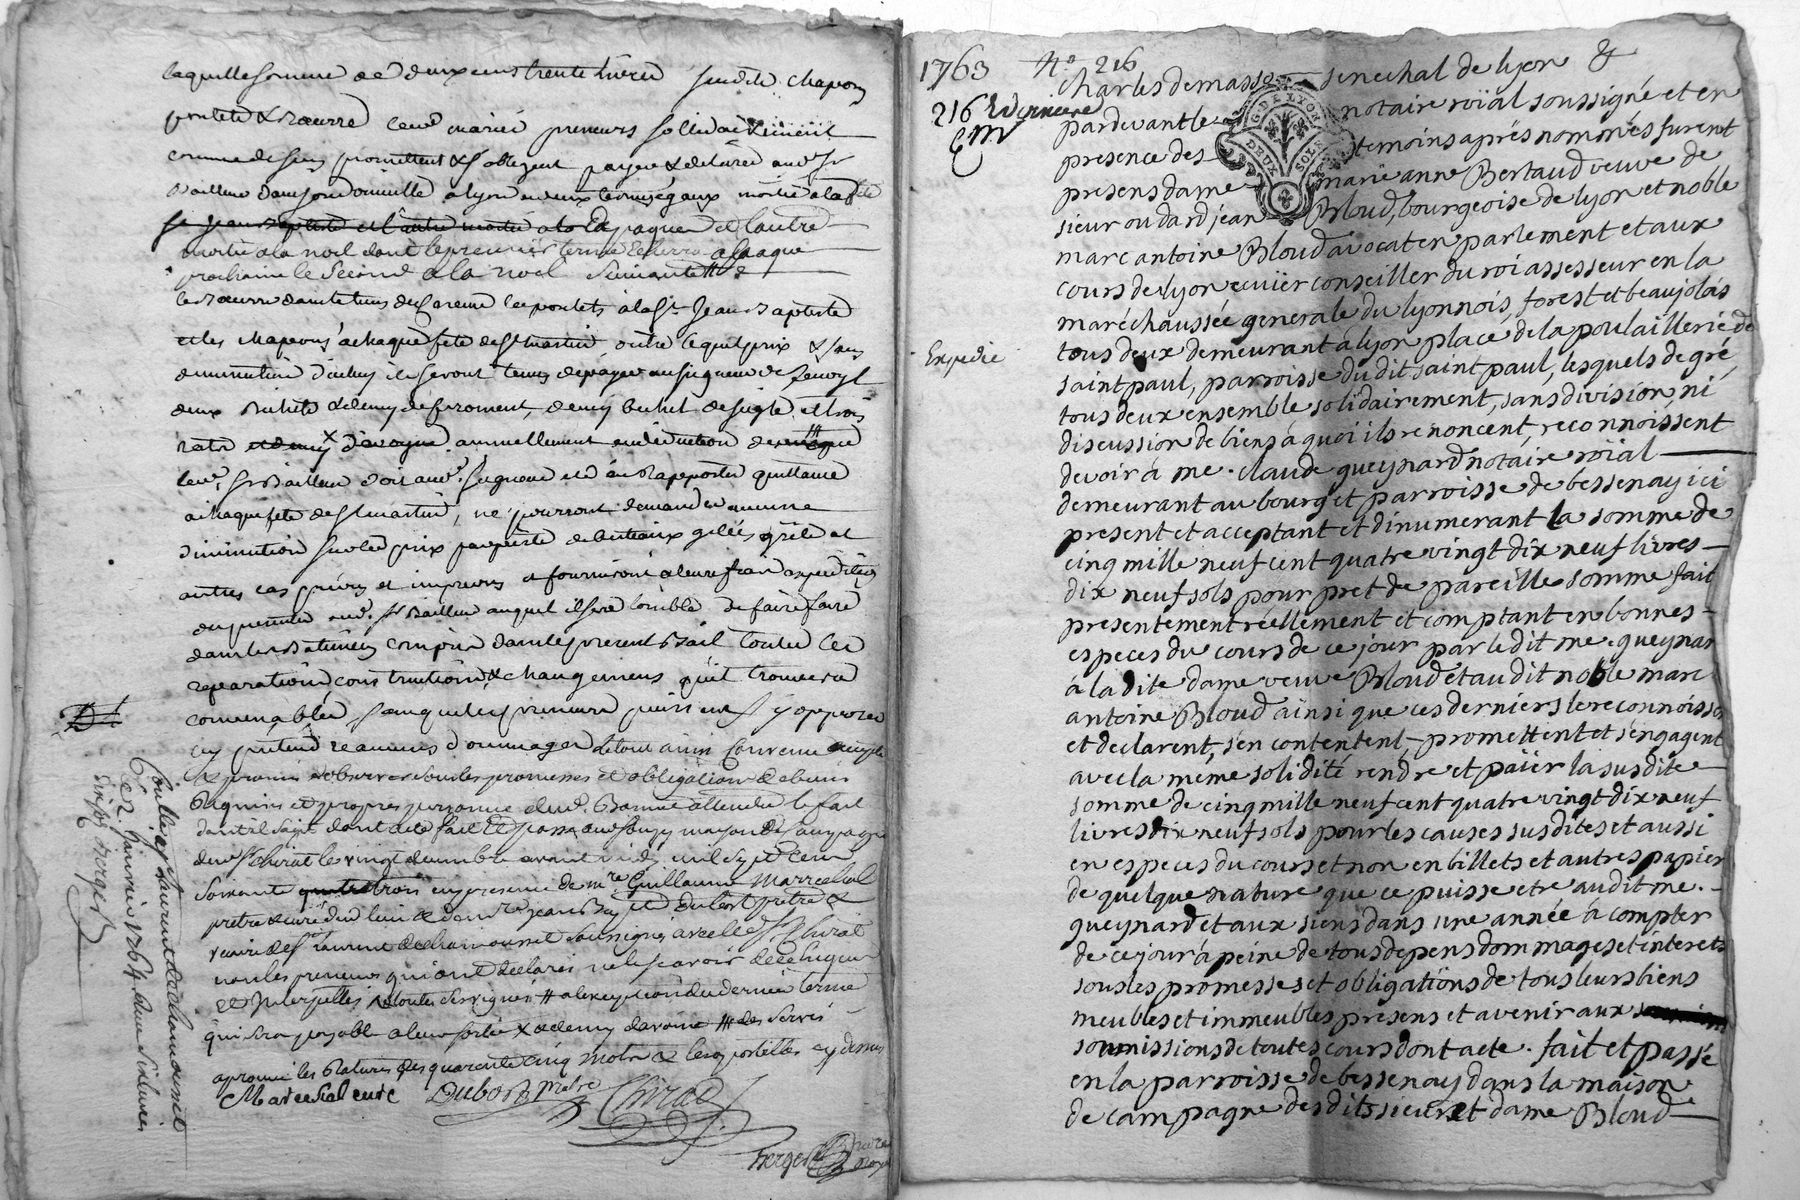 laquelle somme de deux cens trente livres susdits chapons
poulets & beurre lesd. mariés preneurs solidairement
comme dessus promettent & s'obligent payer & delivrer aud. Sr
Bailleur dans son domicille a lyon en deux termes égaux moitié a la fete
de st jean Baptiste et l'autre moitié a la
moitié a la noel dont le premier terme a paque
prochaine le second a la noel suivante
le Beurre dans le tems du careme les poulets à la St Jean Baptiste
et les chapons à chaque fete de St martin, outre lequel prix & sans
diminution d'icelluy ils seront tenus de payer au seigneur de
deux Bichets & demy de froment, demy bichet de seigle et trois
ratx et demy d'avoyne annuellement en déduction de
led. Sr Bailleur doit aud. seigneur et d'en Rapporter quittance
a chaque fete de St martin, ne pourront demander aucune
diminution sur led prix par perte de bestiaux gelées grele et
autres cas prévus et imprevus & fourniront a leurs frais expedition
du présent aud. Sr Bailleur auquel il sera loisible de faire faire
dans les Batimens compris dans le present Bail toutes les
reparations, constructions & changemens qu'il trouvera
convenables, sans que les preneurs puissent s'y opposer
ny pretendre aucuns dommages de tout ainsi convenu accepté
& promis observer sous les promesses et obligations de biens
dont acte fait et passé aud Souzy maison de campagne
dud Sr Chirat le vingt decembre avant midy mil sept cent
soixante quatre trois en presence de mre Guillaume Mareschal
pretre & curé dud lieu & de mre jean Bapte Dubost pretre &
vicaire de St laurent de chamousset soussignés avec led Sr Chirat
non les preneurs qui ont declaré ne le scavoir de ce enquis
et Interpellés a l'exception du dernier terme
qui sera payable a leur sortie & demy d'avoine
aprouvé les Ratures des quarante cinq mots & cy dessus
Mareschal curé Dubost pretre Chirat
Berger notre Royal
Controllé à St Laurent de chamousset
le 2 janvier 1764
Berger
1763 No 216
216 & derniere
Expedié
Charles demasso senechal de lyon &
pardevant le notaire roïal soussigné et en
presence des temoins aprés nommés furent
presens dame marie anne Bertaud veuve de
sieur oudard jean Bloud, bourgeoise de lyon et noble
marc antoine Bloud avocat en parlement et aux
cours de lyon ecuïer conseiller du roi assesseur en la
maréchaussée generale du lyonnois, forest et beaujolois
tous deux demeurant a lyon place de la poulaillerie de
saint paul, parroisse du dit saint paul, lesquels de gré
tous deux ensemble solidairement, sans division, ni
discussion de biens à quoi ils renoncent, reconnoissent
devoir à me. claude queynard notaire roïal
demeurant au bourg et parroisse de bessenay ici
present et acceptant et dinumerant la somme de
cinq mille neuf cent quatre vingt dix neuf livres
dix neuf sols pour pret de pareille somme fait
presentement réellement et comptant en bonnes
especes du cours de ce jour par le dit me. queynar
à la dite dame veuve Bloud et au dit noble marc
antoine Bloud ainsi que ces derniers le reconnoisse
et declarent, s'en contentent, promettent et s'engagent
avec la même solidité rendre et païer la susdite
somme de cinq mille neuf cent quatre vingt dix neuf
livres dix neuf sols pour les causes susdites et aussi
en especes du cours et non en billets et autres papier
de quelque nature que ce puisse etre au dit me.
queynard et aux siens dans une année à compter
de ce jour à peine de tous depens dommages et interets
sous les promesses et obligations de tous leurs biens
meubles et immeubles presens et avenir aux
soumissions de toutes cours dont acte. fait et passé
en la parroisse de bessenay dans la maison
de campagne des dits sieur et dame Bloud
G. DE LYON
DEUX SOLS